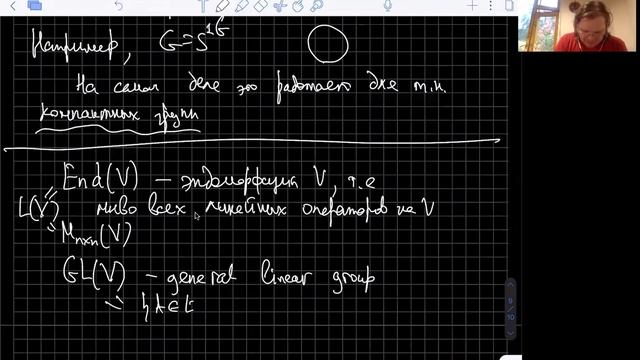 Например, G = S¹
На самом деле это работает для т.н.
компактных групп
End(V) — эндоморфизмы V, т.е
L(V) мн-во всех линейных операторов на V
Mₙₓₙ(V)
GL(V) — general linear group
{A ∈ E
9
10